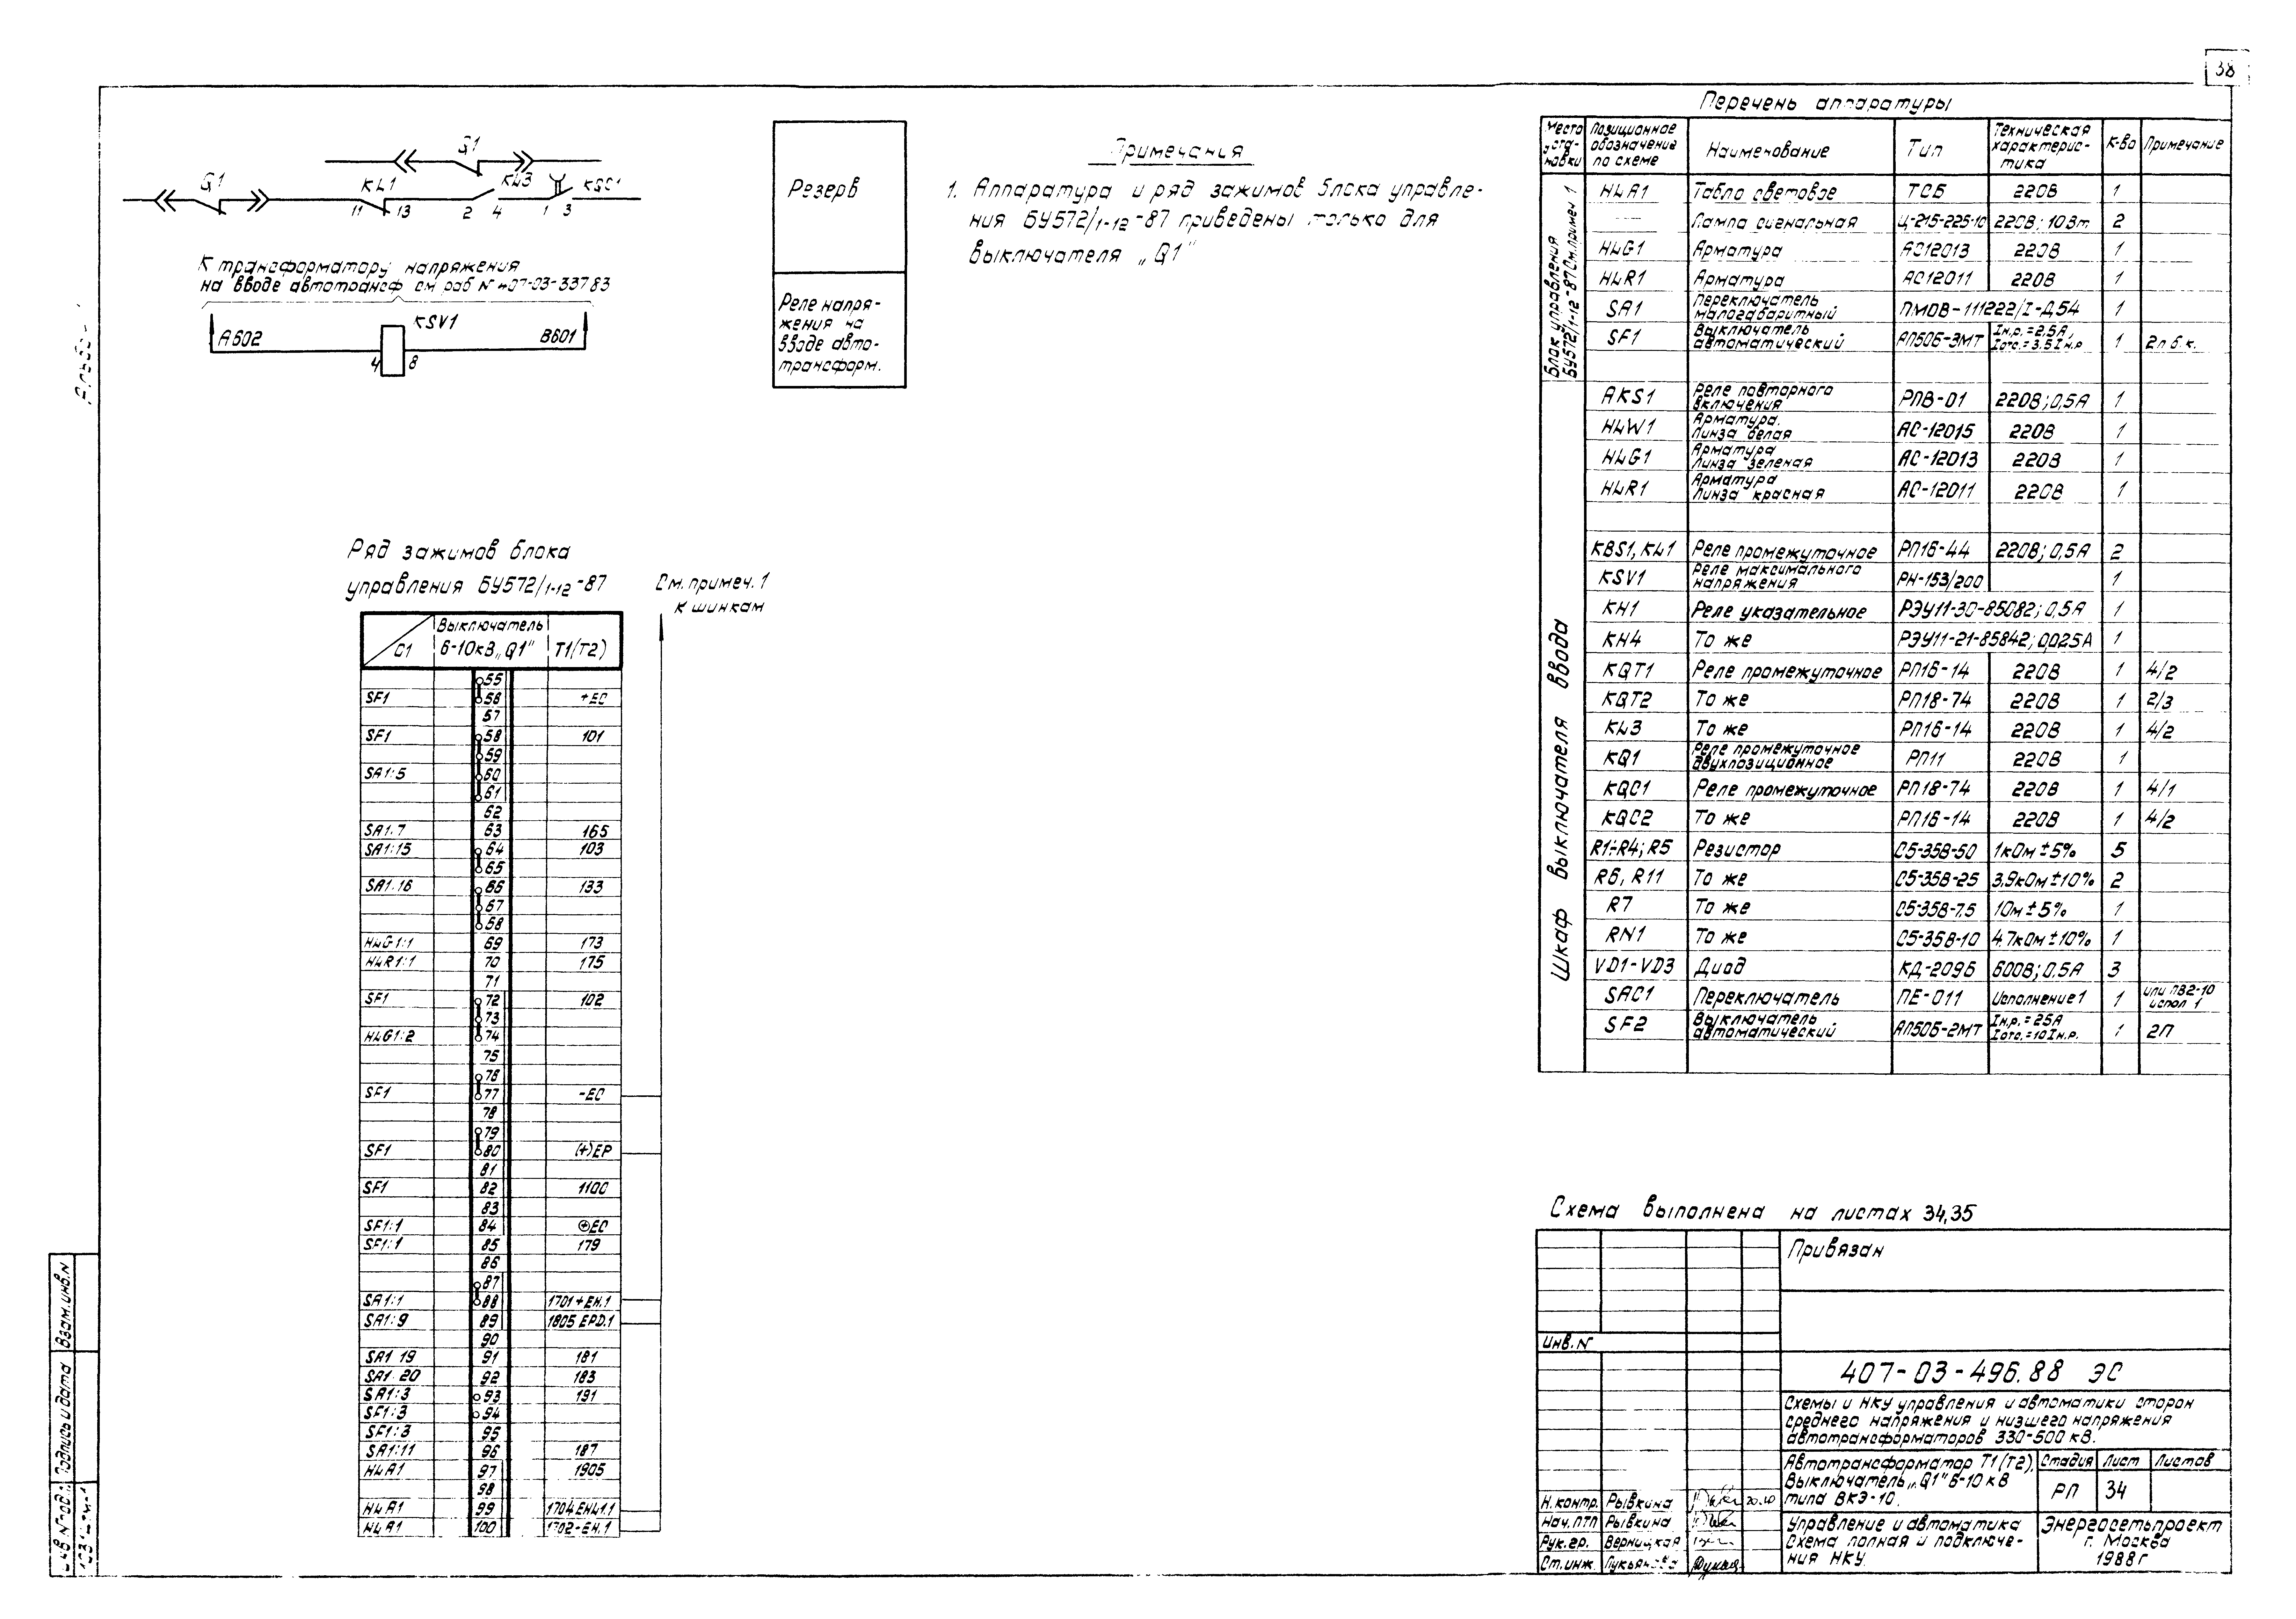 38
Q1
Q1
KL1
KL3
KQC1
11 13 2 4 1 3
К трансформатору напряжения
на вводе автотрансф см раб N 407-03-337.83
A602
KSV1
B601
4 8
Резерв
Реле напря-
жения на
вводе авто-
трансформ.
Примечания
1. Аппаратура и ряд зажимов блока управле-
ния БУ572/1-12-87 приведены только для
выключателя „Q1"
Ряд зажимов блока
управления БУ572/1-12-87
См. примеч. 1
к шинкам
C1 Выключатель 6-10кВ „Q1" T1(T2)
55
SF1 56 +EC
57
SF1 58 101
59
SA1:5 60
61
62
SA1:7 63 165
SA1:15 64 103
65
SA1:16 66 133
67
68
HLG1:1 69 173
HLR1:1 70 175
71
SF1 72 102
73
HLG1:2 74
75
76
SF1 77 -EC
78
79
SF1 80 (+)EP
81
SF1 82 1100
83
SF1:1 84 ⊕EC
SF1:1 85 179
86
87
SA1:1 88 1701 +EH.1
SA1:9 89 1805 EPD.1
90
SA1 19 91 181
SA1 20 92 183
SA1:3 93 191
SF1:3 94
SF1:3 95
SA1:11 96 187
HLA1 97 1905
98
HLA1 99 1704 EHL1.1
HLA1 100 1702-EH.1
Перечень аппаратуры
Место уста-новки Позиционное обозначение по схеме Наименование Тип Техническая характерис-тика К-во Примечание
Блок управления БУ572/1-12-87 См. примеч 1
HLA1 Табло световое ТСБ 220В 1
Лампа сигнальная Ц-215-225-10 220В; 10Вт 2
HLG1 Арматура АС12013 220В 1
HLR1 Арматура АС12011 220В 1
SA1 Переключатель малогабаритный ПМОВ-111222/I-Д54 1
SF1 Выключатель автоматический АП50Б-3МТ Iн.р.=2,5А, Iотс.=3.5Iн.р 1 2п б.к.
Шкаф выключателя ввода
AKS1 Реле повторного включения РПВ-01 220В; 0,5А 1
HLW1 Арматура. Линза белая АС-12015 220В 1
HLG1 Арматура Линза зеленая АС-12013 220В 1
HLR1 Арматура Линза красная АС-12011 220В 1
KBS1, KL1 Реле промежуточное РП16-44 220В; 0,5А 2
KSV1 Реле максимального напряжения РН-153/200 1
KH1 Реле указательное РЭУ11-30-85082; 0,5А 1
KH4 То же РЭУ11-21-85842; 0,025А 1
KQT1 Реле промежуточное РП16-14 220В 1 4/2
KQT2 То же РП18-74 220В 1 2/3
KL3 То же РП16-14 220В 1 4/2
KQ1 Реле промежуточное двухпозиционное РП11 220В 1
KQC1 Реле промежуточное РП18-74 220В 1 4/1
KQC2 То же РП16-14 220В 1 4/2
R1÷R4; R5 Резистор С5-35В-50 1кОм±5% 5
R6, R11 То же С5-35В-25 3,9кОм±10% 2
R7 То же С5-35В-7.5 1Ом±5% 1
RN1 То же С5-35В-10 4.7кОм±10% 1
VD1-VD3 Диод КД-209Б 600В; 0.5А 3
SAC1 Переключатель ПЕ-011 Исполнение 1 1 или ПВ2-10 испол 1
SF2 Выключатель автоматический АП50Б-2МТ Iн.р.=25А Iотс.=10Iн.р. 1 2П
Схема выполнена на листах 34,35
Привязан
Инв. N
407-03-496.88 ЭС
Схемы и НКУ управления и автоматики сторон
среднего напряжения и низшего напряжения
автотрансформаторов 330-500 кВ.
Автотрансформатор Т1(Т2),
Выключатель „Q1" 6-10 кВ
типа ВКЭ-10.
Стадия Лист Листов
РП 34
Управление и автоматика
Схема полная и подключе-
ния НКУ.
Энергосетьпроект
г. Москва
1988г
Н.контр. Рывкина
Нач.ПТП Рывкина
Рук.гр. Верницкая
Ст.инж. Лукьянова
Взам. инв. N
Подпись и дата